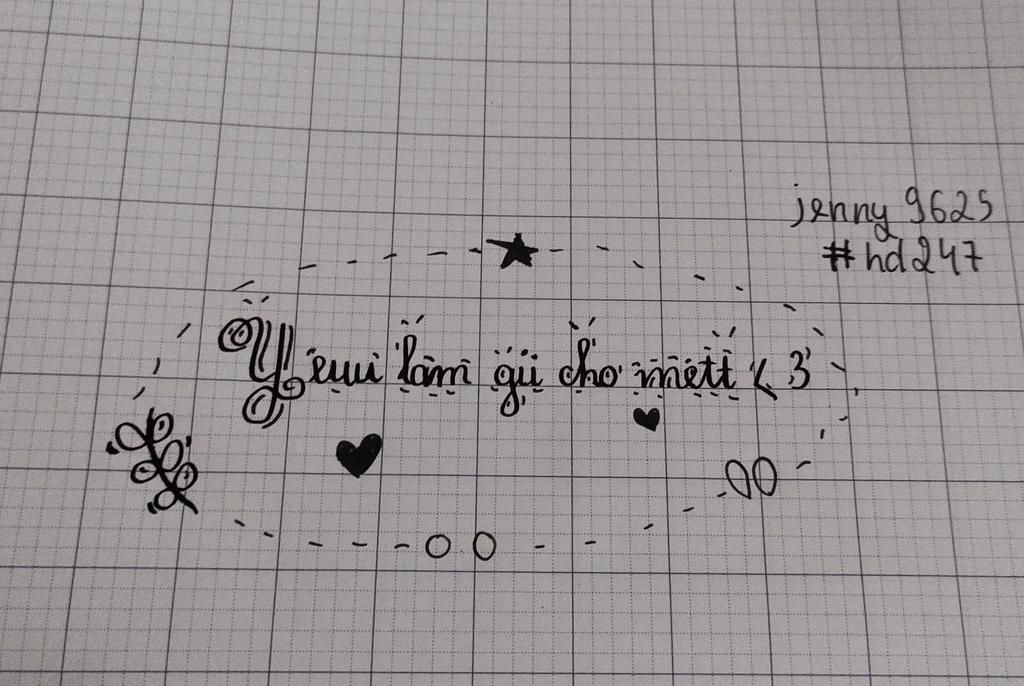 jenny 9625
#hd247
Yeuu làm gìi cho mêtt < 3